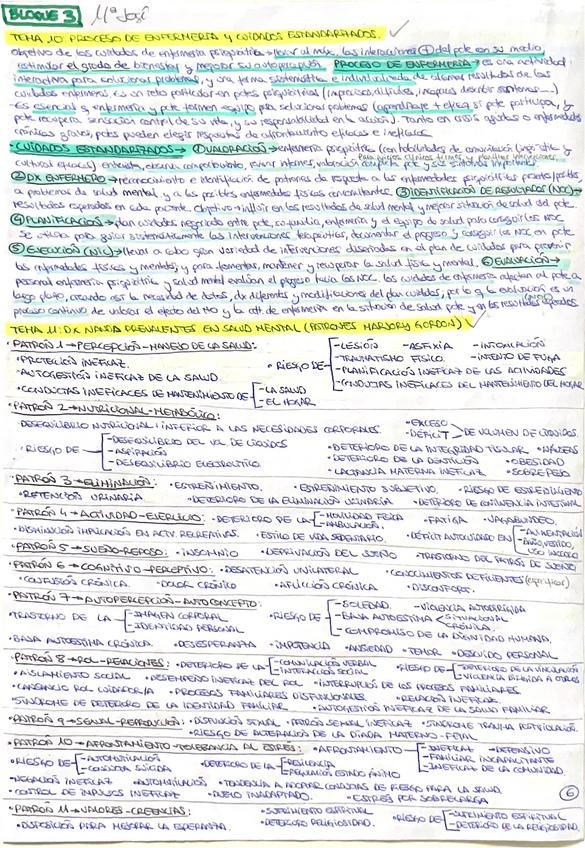 BLOQUE 3 Mª José
TEMA 10: PROCESO DE ENFERMERÍA Y CUIDADOS ESTANDARIZADOS.
objetivo de los cuidados de enfermería psiquiátrica → llevar al máx. las interacciones (+) del pcte con su medio,
estimular el grado de bienestar y mejorar su autopercepción. PROCESO DE ENFERMERÍA → es una actividad
interactiva para solucionar problemas, y una forma sistemática e individualizada de obtener resultados de los
cuidados enfermeros es un reto particular en pctes psiquiátricos
- Es esencial q enfermería y pcte formen equipo para solucionar problemas (aprendizaje + eficaz si pcte participa, y
pcte recupera sensación control de su vida, y su responsabilidad en la acción). Tanto en crisis agudas o enfermedades
crónicas graves, pctes pueden elegir respuestas de afrontamiento eficaces e ineficaces.
· CUIDADOS ESTANDARIZADOS → ① VALORACIÓN → enfermería psiquiátrica (con habilidades de comunicación lingüística y
cultural eficaces) entrevista, observa comportamiento, revisa informes, valoración completa pcte y sus sistemas importantes.
② DX ENFERMERO → reconocimiento e identificación de patrones de respuesta a las enfermedades psiquiátricas
a problemas de salud mental, y a las posibles enfermedades físicas concomitantes. ③ IDENTIFICACIÓN DE RESULTADOS (NOC) →
resultados esperados en cada paciente. Objetivo → influir en los resultados de salud mental y mejorar situación de salud del pcte.
④ PLANIFICACIÓN → plan cuidados negociado entre pcte, su familia, enfermería y el equipo de salud para conseguir los NOC
Se utiliza para guiar sistemáticamente las intervenciones terapéuticas, documentar el progreso y conseguir los NOC en pcte
⑤ EJECUCIÓN (NIC) → llevar a cabo gran variedad de intervenciones diseñadas en el plan de cuidados para prevenir
las enfermedades físicas y mentales, y para fomentar, mantener y recuperar la salud física y mental. ⑥ EVALUACIÓN →
personal enfermería psiquiátrica y salud mental evalúan el progreso hacia los NOC. los cuidados de enfermería afectan al pcte a
largo plazo, creando así la necesidad de datos, dx diferentes y modificaciones del plan cuidados, por lo q la evaluación es un
proceso continuo de valorar el efecto del tto y la att. de enfermería en la situación de salud pcte y en los resultados esperados
TEMA 11: DX NANDA PREVALENTES EN SALUD MENTAL (PATRONES MARJORY GORDON)
· PATRÓN 1 → PERCEPCIÓN-MANEJO DE LA SALUD:
· PROTECCIÓN INEFICAZ.
· AUTOGESTIÓN INEFICAZ DE LA SALUD.
· CONDUCTAS INEFICACES DE MANTENIMIENTO DE - LA SALUD - EL HOGAR
· RIESGO DE - LESIÓN - ASFIXIA - INTOXICACIÓN
- TRAUMATISMO FÍSICO. - INTENTO DE FUGA
- PLANIFICACIÓN INEFICAZ DE LAS ACTIVIDADES
- CONDUCTAS INEFICACES DEL MANTENIMIENTO DEL HOGAR
· PATRÓN 2 → NUTRICIONAL-METABÓLICO:
· DESEQUILIBRIO NUTRICIONAL: INFERIOR A LAS NECESIDADES CORPORALES. · EXCESO · DÉFICIT DE VOLUMEN DE LÍQUIDOS.
· RIESGO DE - DESEQUILIBRIO DEL VOL DE LÍQUIDOS - ASPIRACIÓN - DESEQUILIBRIO ELECTROLÍTICO
· DETERIORO DE LA INTEGRIDAD TISULAR · NÁUSEAS
· DETERIORO DE LA DENTICIÓN · OBESIDAD
· LACTANCIA MATERNA INEFICAZ · SOBREPESO
· PATRÓN 3 → ELIMINACIÓN: · ESTREÑIMIENTO. · ESTREÑIMIENTO SUBJETIVO. · RIESGO DE ESTREÑIMIENTO
· RETENCIÓN URINARIA. · DETERIORO DE LA ELIMINACIÓN URINARIA · DETERIORO DE CONTINENCIA INTESTINAL
· PATRÓN 4 → ACTIVIDAD-EJERCICIO: · DETERIORO DE LA - MOVILIDAD FÍSICA - AMBULACIÓN. · FATIGA · VAGABUNDEO.
· DISMINUCIÓN IMPLICACIÓN EN ACTV. RECREATIVAS. · ESTILO DE VIDA SEDENTARIO. · DÉFICIT AUTOCUIDADO EN - ALIMENTACIÓN - BAÑO, VESTIDO, - USO INODORO
· PATRÓN 5 → SUEÑO-REPOSO: · INSOMNIO · DEPRIVACIÓN DEL SUEÑO · TRASTORNO DEL PATRÓN DE SUEÑO
· PATRÓN 6 → COGNITIVO-PERCEPTIVO: · DESATENCIÓN UNILATERAL · CONOCIMIENTOS DEFICIENTES (especificar)
· CONFUSIÓN CRÓNICA. · DOLOR CRÓNICO · AFLICCIÓN CRÓNICA · DISCONFORT.
· PATRÓN 7 → AUTOPERCEPCIÓN-AUTOCONCEPTO:
· TRASTORNO DE LA - IMAGEN CORPORAL - IDENTIDAD PERSONAL
· RIESGO DE - SOLEDAD. - VIOLENCIA AUTODIRIGIDA
- BAJA AUTOESTIMA SITUACIONAL CRÓNICA.
- COMPROMISO DE LA DIGNIDAD HUMANA.
· BAJA AUTOESTIMA CRÓNICA. · DESESPERANZA · IMPOTENCIA · ANSIEDAD · TEMOR · DESCUIDO PERSONAL
· PATRÓN 8 → ROL-RELACIONES: · DETERIORO DE LA - COMUNICACIÓN VERBAL - INTERACCIÓN SOCIAL · RIESGO DE - DETERIORO DE LA VINCULACIÓN - VIOLENCIA DIRIGIDA A OTROS
· AISLAMIENTO SOCIAL · DESEMPEÑO INEFICAZ DEL ROL · INTERRUPCIÓN DE LOS PROCESOS FAMILIARES
· CANSANCIO ROL CUIDADOR/A · PROCESOS FAMILIARES DISFUNCIONALES · RELACIÓN INEFICAZ.
· SÍNDROME DE DETERIORO DE LA IDENTIDAD FAMILIAR · AUTOGESTIÓN INEFICAZ DE LA SALUD FAMILIAR
· PATRÓN 9 → SEXUAL-REPRODUCCIÓN: · DISFUNCIÓN SEXUAL · PATRÓN SEXUAL INEFICAZ · SÍNDROME TRAUMA POSTVIOLACIÓN
· RIESGO DE ALTERACIÓN DE LA DIADA MATERNO-FETAL
· PATRÓN 10 → AFRONTAMIENTO-TOLERANCIA AL ESTRÉS: · AFRONTAMIENTO - INEFICAZ - DEFENSIVO
- FAMILIAR INCAPACITANTE
- INEFICAZ DE LA COMUNIDAD.
· RIESGO DE - AUTOMUTILACIÓN - CONDUCTA SUICIDA · DETERIORO DE LA - RESILIENCIA - REGULACIÓN ESTADO ÁNIMO
· NEGACIÓN INEFICAZ · AUTOMUTILACIÓN · TENDENCIA A ADOPTAR CONDUCTAS DE RIESGO PARA LA SALUD.
· CONTROL DE IMPULSOS INEFICAZ · DUELO INADAPTADO. · ESTRÉS POR SOBRECARGA
6
· PATRÓN 11 → VALORES-CREENCIAS: · SUFRIMIENTO ESPIRITUAL · RIESGO DE - SUFRIMIENTO ESPIRITUAL - DETERIORO DE LA RELIGIOSIDAD.
· DISPOSICIÓN PARA MEJORAR LA ESPERANZA. · DETERIORO RELIGIOSIDAD.